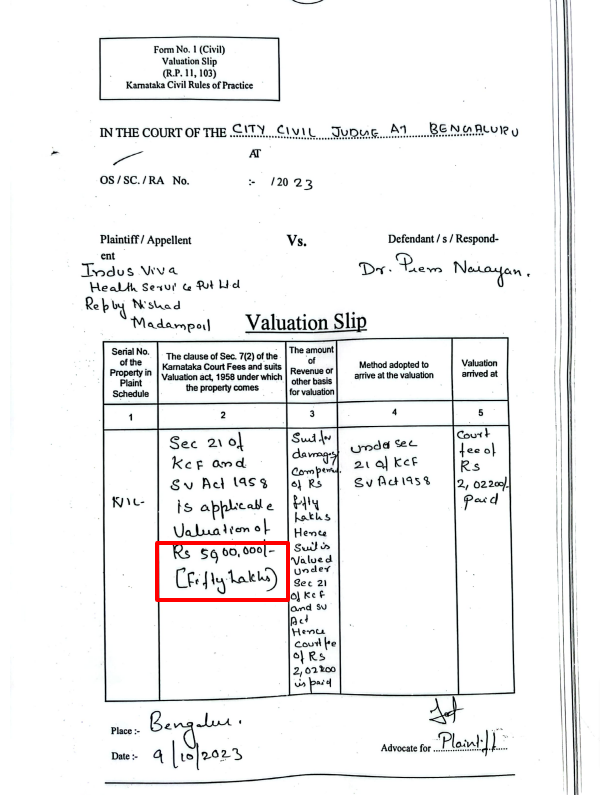 Form No. 1 (Civil)
Valuation Slip
(R.P. 11, 103)
Karnataka Civil Rules of Practice
IN THE COURT OF THE CITY CIVIL JUDGE AT BENGALURU
AT
OS / SC. / RA No. :- /2023
Plaintiff / Appellent Vs. Defendant / s / Respond-
ent
Indus Viva Dr. Prem Narayan.
Health Service Pvt Ltd
Rep by Nishad
Madampoil
Valuation Slip
Serial No. of the Property in Plaint Schedule
The clause of Sec. 7(2) of the Karnataka Court Fees and suits Valuation act, 1958 under which the property comes
The amount of Revenue or other basis for valuation
Method adopted to arrive at the valuation
Valuation arrived at
1 2 3 4 5
NIL-
Sec 21 of
KCF and
SV Act 1958
is applicable
Valuation of
Rs 5900,000/-
(Fifty Lakhs)
Suit for
damages
Compens
of Rs
fifty
Lakhs
Hence
Suit is
Valued
under
Sec 21
of KCF
and SV
Act
Hence
court fee
of Rs
2,02200
is paid
under sec
21 of KCF
SV Act 1958
Court
fee of
Rs
2,02200/-
paid
Place :- Bengaluru.
Date :- 9/10/2023
Advocate for Plaintiff